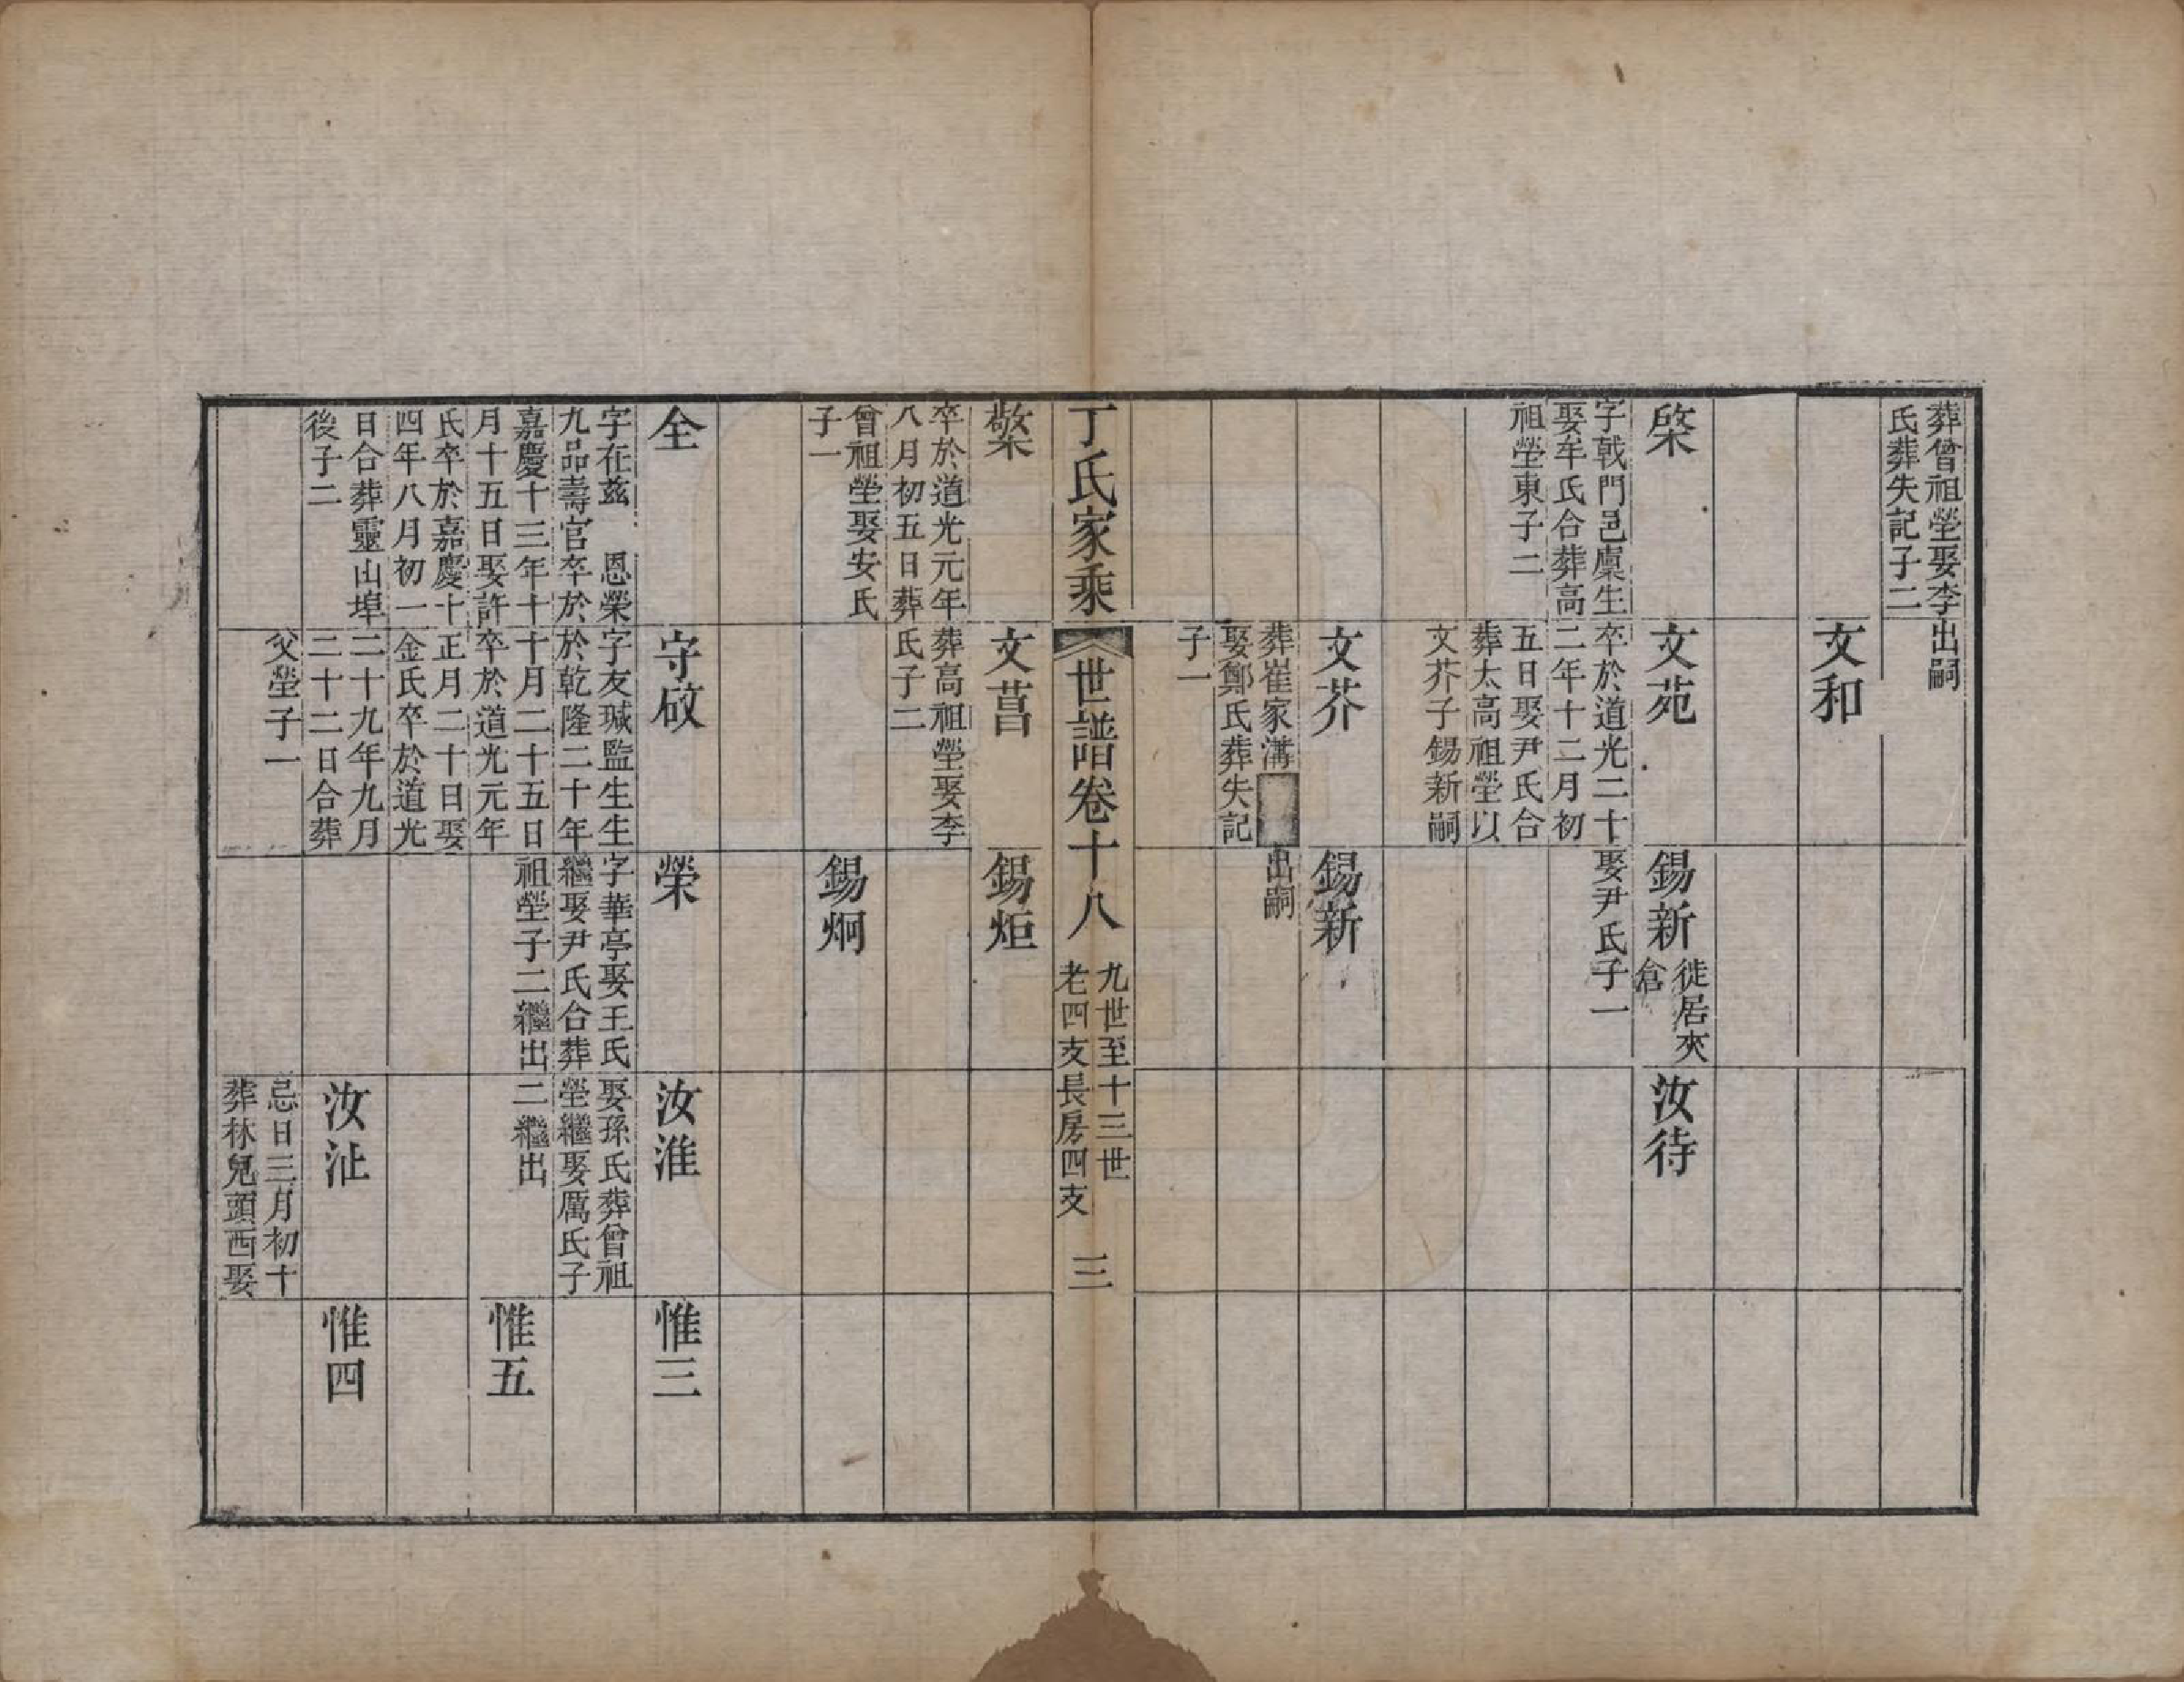 葬曾祖塋娶李
氏葬失記子二
棨
字戟門邑廩生
娶牟氏合葬高
祖塋東子二
出嗣
文和
文苑
卒於道光二十
二年十二月初
五日娶尹氏合
葬太高祖塋以
文芥子錫新嗣
文芥
葬崔家溝
娶鄭氏葬失記
子一
錫新
徙居夾
倉
娶尹氏子一
錫新
出嗣
汝待
丁氏家乘
世譜卷十八
九世至十三世
老四支長房四支
三
檠
卒於道光元年
八月初五日葬
曾祖塋娶安氏
子一
全
字在茲 恩榮
九品壽官卒於
嘉慶十三年十
月十五日娶許
氏卒於嘉慶十
四年八月初一
日合葬靈山埠
後子二
文菖
葬高祖塋娶李
氏子二
守啟
字友瑊監生生
於乾隆二十年
十月二十五日
卒於道光元年
正月二十日娶
金氏卒於道光
二十九年九月
二十二日合葬
父塋子一
錫炬
錫炯
榮
字華亭娶王氏
繼娶尹氏合葬
祖塋子二繼出
汝淮
娶孫氏葬曾祖
塋繼娶厲氏子
二繼出
汝沚
忌日三月初十
葬林兒頭西娶
惟三
惟五
惟四